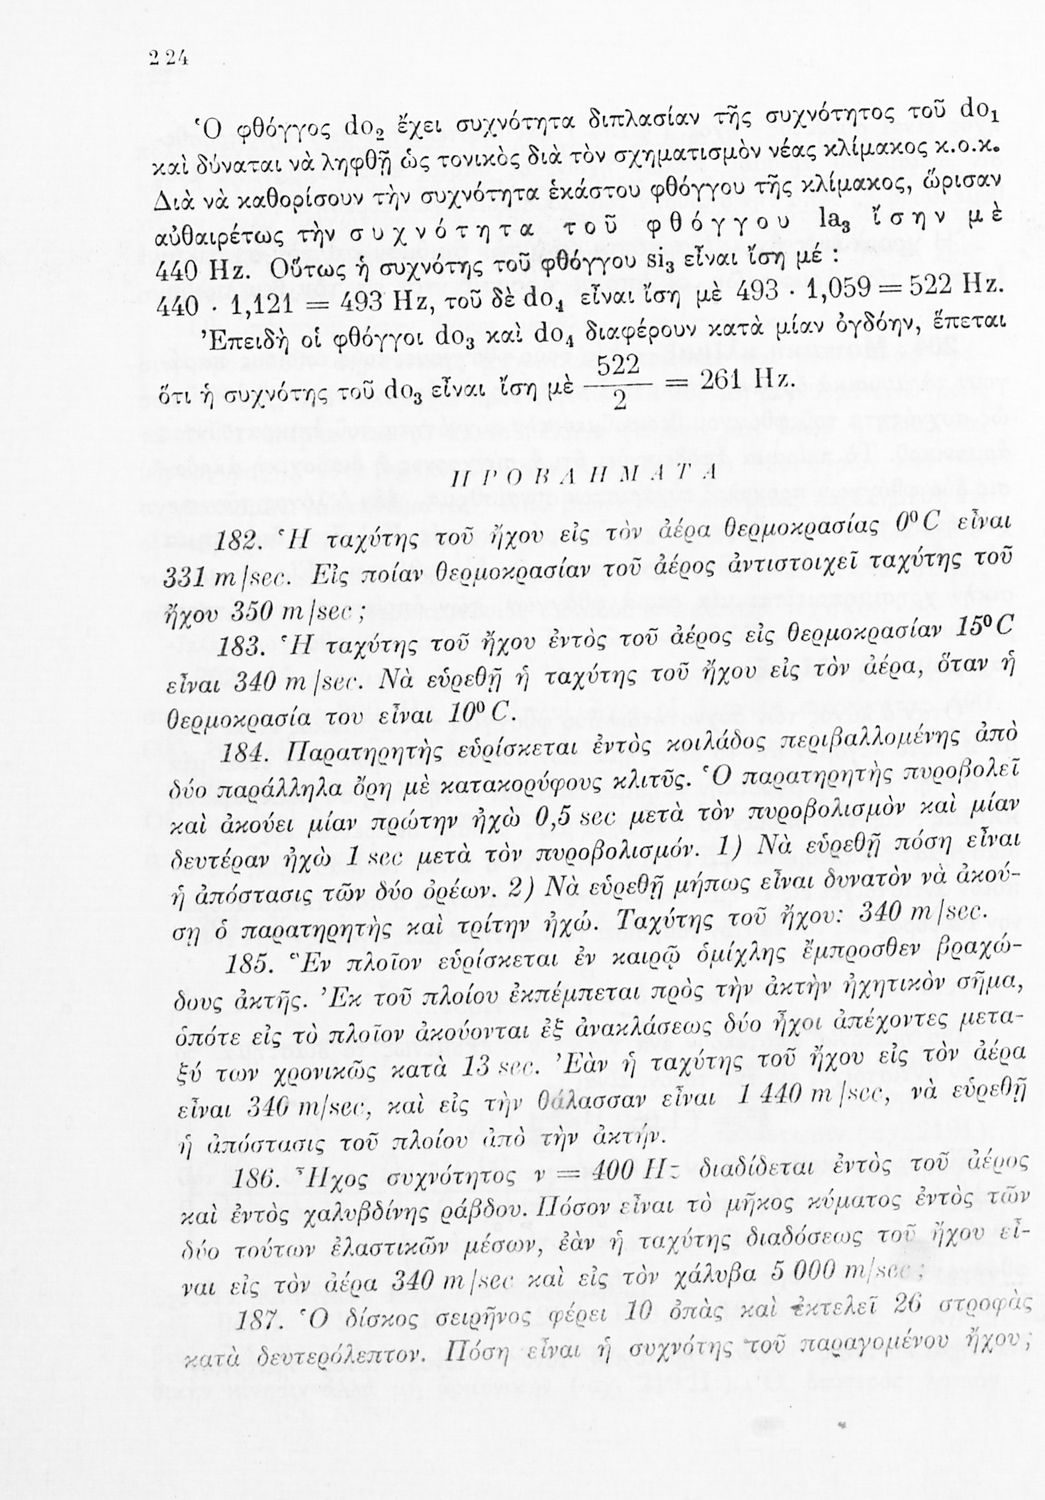 224
Ὁ φθόγγος do₂ ἔχει συχνότητα διπλασίαν τῆς συχνότητος τοῦ do₁
καὶ δύναται νὰ ληφθῇ ὡς τονικὸς διὰ τὸν σχηματισμὸν νέας κλίμακος κ.ο.κ.
Διὰ νὰ καθορίσουν τὴν συχνότητα ἑκάστου φθόγγου τῆς κλίμακος, ὥρισαν
αὐθαιρέτως τὴν συχνότητα τοῦ φθόγγου la₃ ἴσην μὲ
440 Hz. Οὕτως ἡ συχνότης τοῦ φθόγγου si₃ εἶναι ἴση μέ :
440 · 1,121 = 493 Hz, τοῦ δὲ do₄ εἶναι ἴση μὲ 493 · 1,059 = 522 Hz.
Ἐπειδὴ οἱ φθόγγοι do₃ καὶ do₄ διαφέρουν κατὰ μίαν ὀγδόην, ἕπεται
ὅτι ἡ συχνότης τοῦ do₃ εἶναι ἴση μὲ 522/2 = 261 Hz.
ΠΡΟΒΛΗΜΑΤΑ
182. Ἡ ταχύτης τοῦ ἤχου εἰς τὸν ἀέρα θερμοκρασίας 0⁰ C εἶναι
331 m/sec. Εἰς ποίαν θερμοκρασίαν τοῦ ἀέρος ἀντιστοιχεῖ ταχύτης τοῦ
ἤχου 350 m/sec ;
183. Ἡ ταχύτης τοῦ ἤχου ἐντὸς τοῦ ἀέρος εἰς θερμοκρασίαν 15⁰ C
εἶναι 340 m/sec. Νὰ εὑρεθῇ ἡ ταχύτης τοῦ ἤχου εἰς τὸν ἀέρα, ὅταν ἡ
θερμοκρασία του εἶναι 10⁰ C.
184. Παρατηρητὴς εὑρίσκεται ἐντὸς κοιλάδος περιβαλλομένης ἀπὸ
δύο παράλληλα ὄρη μὲ κατακορύφους κλιτῦς. Ὁ παρατηρητὴς πυροβολεῖ
καὶ ἀκούει μίαν πρώτην ἠχὼ 0,5 sec μετὰ τὸν πυροβολισμὸν καὶ μίαν
δευτέραν ἠχὼ 1 sec μετὰ τὸν πυροβολισμόν. 1) Νὰ εὑρεθῇ πόση εἶναι
ἡ ἀπόστασις τῶν δύο ὀρέων. 2) Νὰ εὑρεθῇ μήπως εἶναι δυνατὸν νὰ ἀκού-
ση ὁ παρατηρητὴς καὶ τρίτην ἠχώ. Ταχύτης τοῦ ἤχου: 340 m/sec.
185. Ἓν πλοῖον εὑρίσκεται ἐν καιρῷ ὁμίχλης ἔμπροσθεν βραχώ-
δους ἀκτῆς. Ἐκ τοῦ πλοίου ἐκπέμπεται πρὸς τὴν ἀκτὴν ἠχητικὸν σῆμα,
ὁπότε εἰς τὸ πλοῖον ἀκούονται ἐξ ἀνακλάσεως δύο ἦχοι ἀπέχοντες μετα-
ξύ των χρονικῶς κατὰ 13 sec. Ἐὰν ἡ ταχύτης τοῦ ἤχου εἰς τὸν ἀέρα
εἶναι 340 m/sec, καὶ εἰς τὴν θάλασσαν εἶναι 1 440 m/sec, νὰ εὑρεθῇ
ἡ ἀπόστασις τοῦ πλοίου ἀπὸ τὴν ἀκτήν.
186. Ἦχος συχνότητος ν = 400 Hz διαδίδεται ἐντὸς τοῦ ἀέρος
καὶ ἐντὸς χαλυβδίνης ράβδου. Πόσον εἶναι τὸ μῆκος κύματος ἐντὸς τῶν
δύο τούτων ἐλαστικῶν μέσων, ἐὰν ἡ ταχύτης διαδόσεως τοῦ ἤχου εἶ-
ναι εἰς τὸν ἀέρα 340 m/sec καὶ εἰς τὸν χάλυβα 5 000 m/sec ;
187. Ὁ δίσκος σειρῆνος φέρει 10 ὀπὰς καὶ ἐκτελεῖ 26 στροφὰς
κατὰ δευτερόλεπτον. Πόση εἶναι ἡ συχνότης τοῦ παραγομένου ἤχου ;